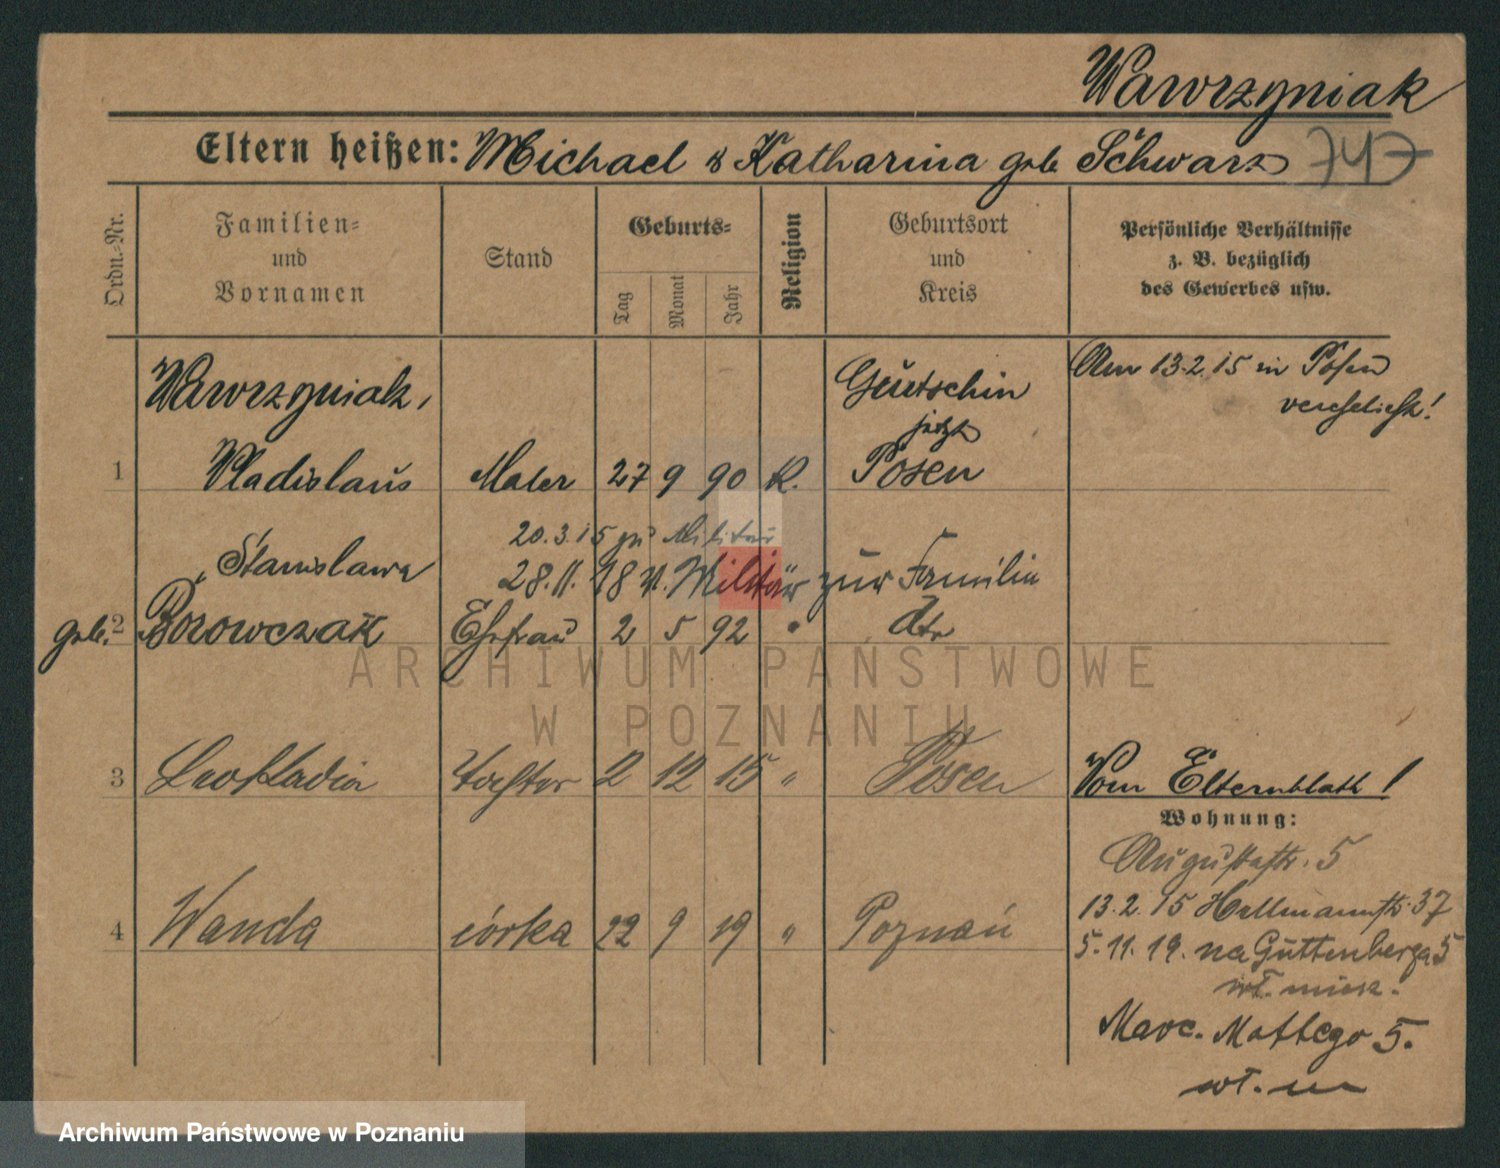 Wawrzyniak
Eltern heißen: Michael & Katharina geb. Schwarz 747
Ordn.-Nr.
Familien- und Vornamen
Stand
Geburts-
Tag
Monat
Jahr
Religion
Geburtsort und Kreis
Persönliche Verhältnisse
z. B. bezüglich
des Gewerbes usw.
Wawrzyniak,
Gurtschin
Am 13.2.15 in Posen
verehelicht!
jetzt
1 Wladislaus Maler 27 9 90 k. Posen
20.3.15 zu Militär
Stanislawa 28.11.18 v. Militär zur Familie
geb. 2 Borowczak Ehefrau 2 5 92 " dto
3 Leokladia Tochter 2 12 15 " Posen
Vom Elternblatt!
Wohnung:
Augustastr. 5
4 Wanda córka 22 9 19 " Poznań
13.2.15 Hellmannstr. 37
5.11.19. na Guttenberga 5
wł. miesz.
Marc. Mottego 5.
wł. m
ARCHIWUM PAŃSTWOWE
W POZNANIU
Archiwum Państwowe w Poznaniu